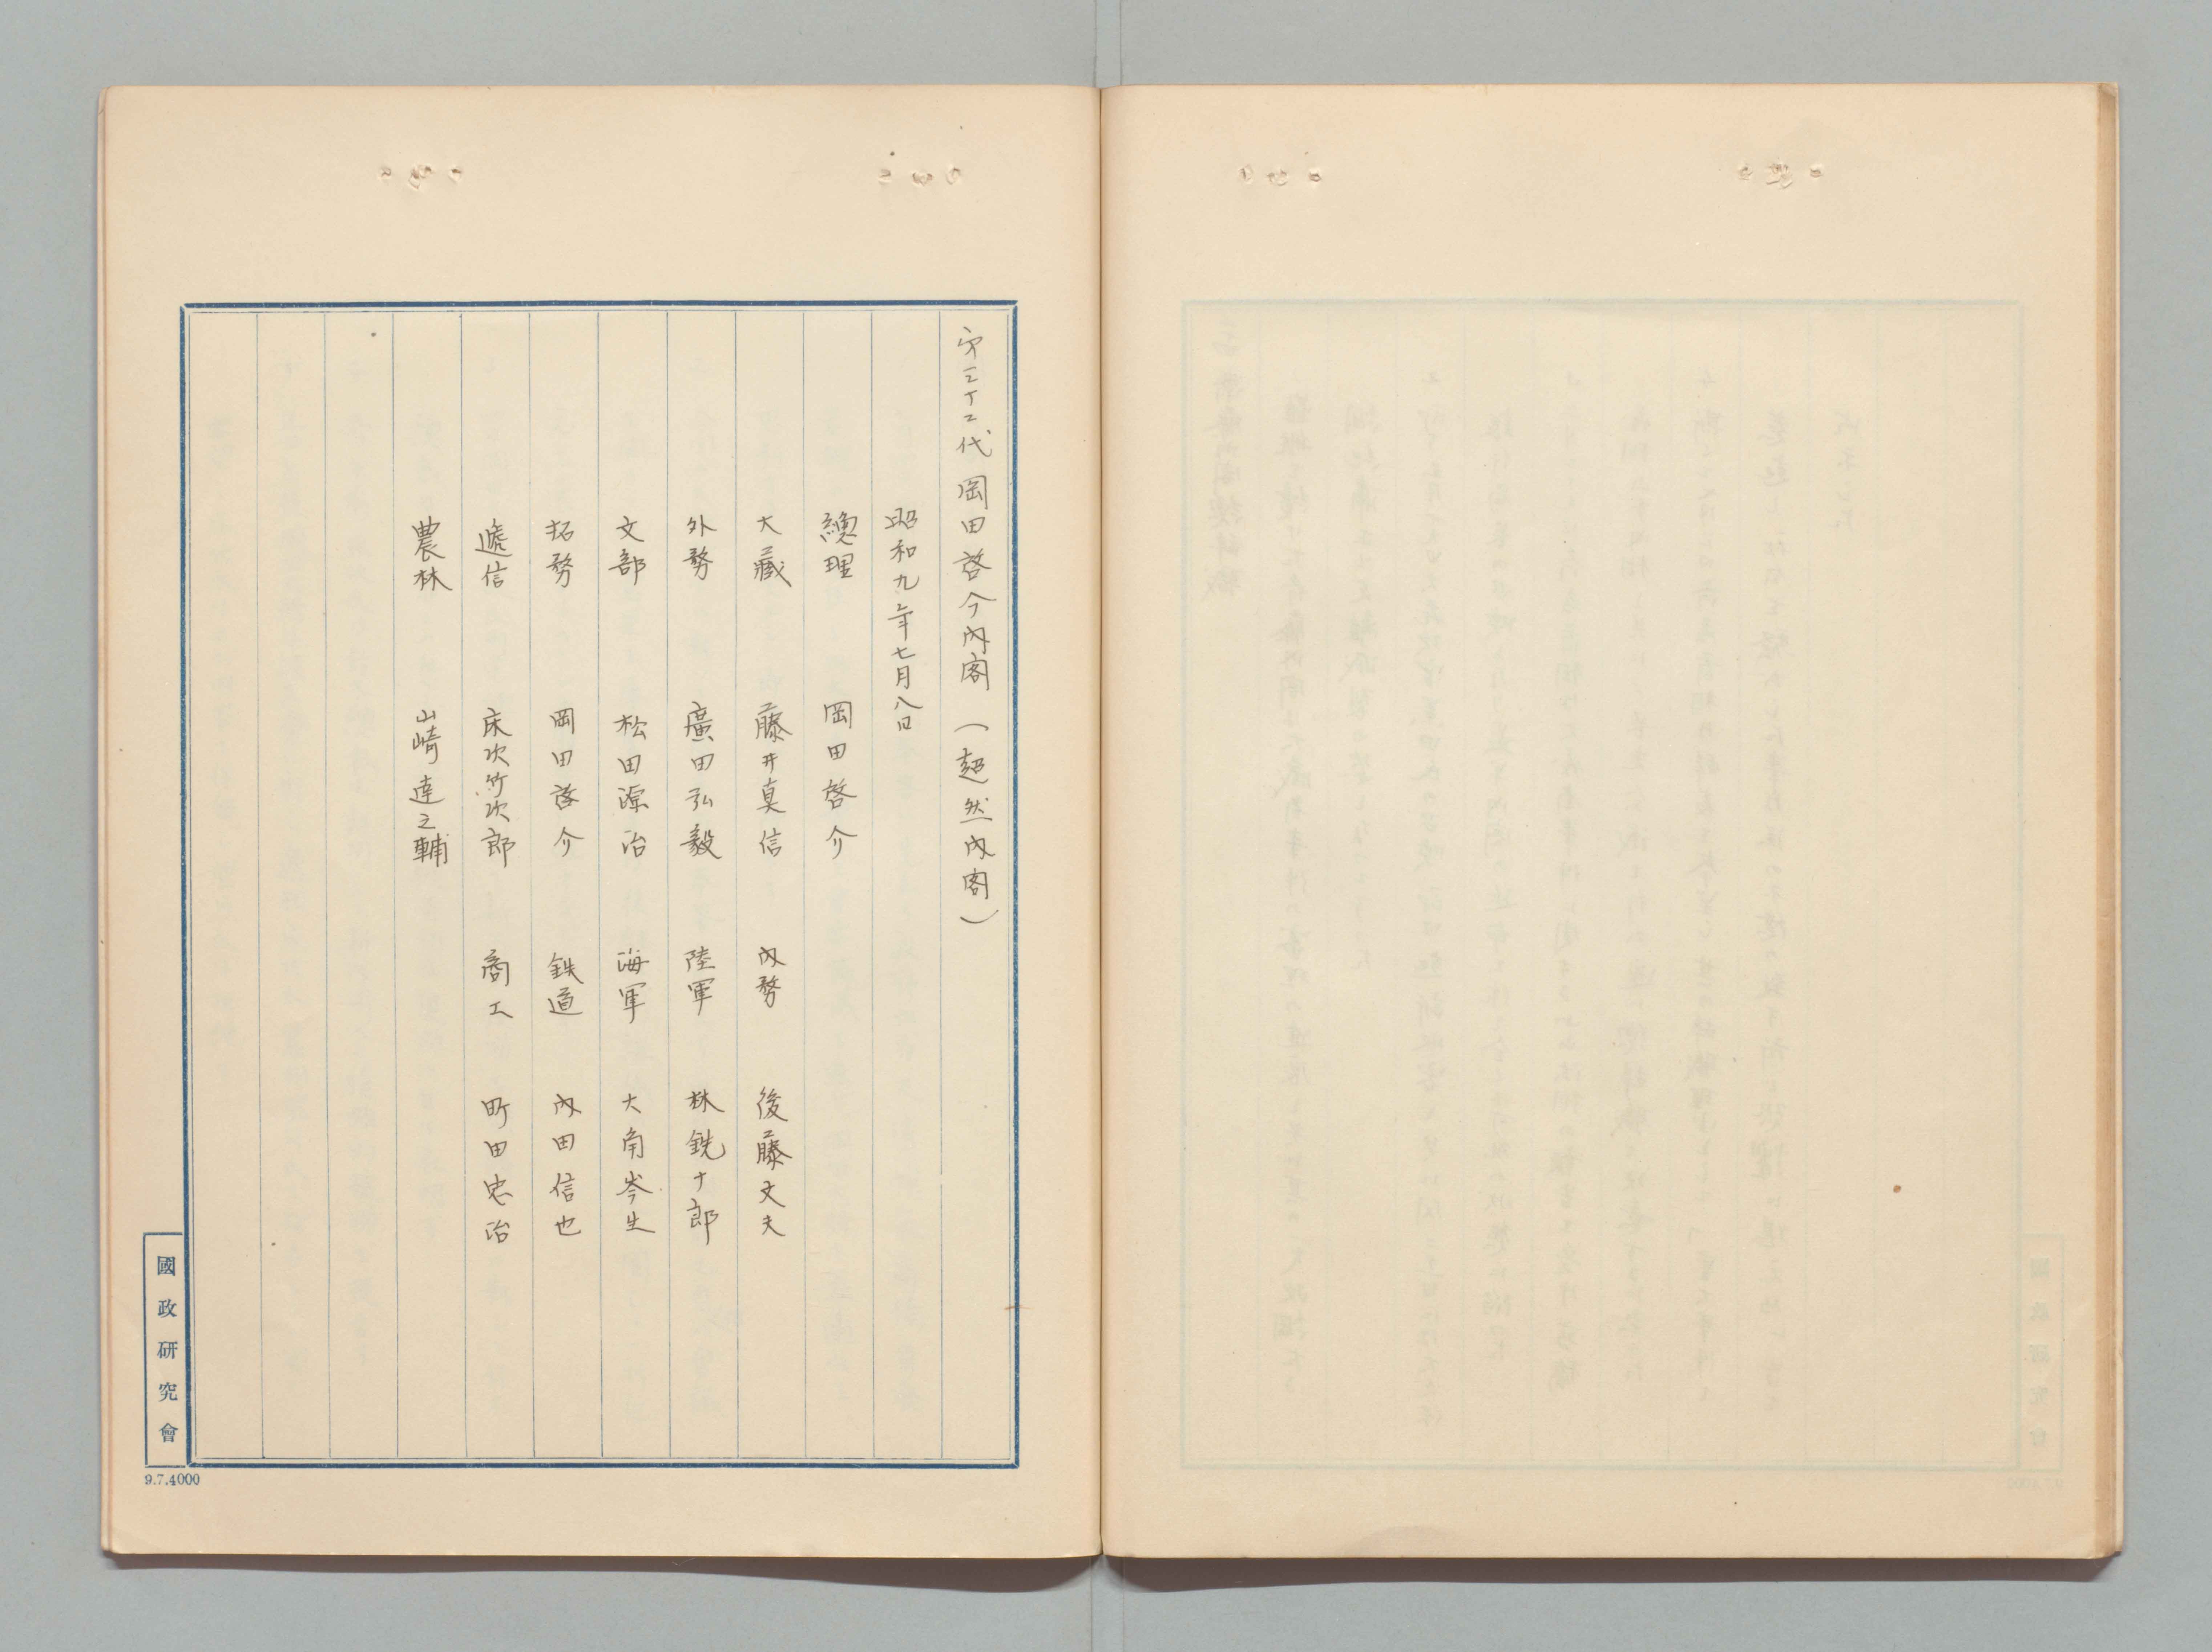 第三十二代 岡田啓介内閣（超然内閣）
昭和九年七月八日
總理 岡田啓介
大藏 藤井真信 内務 後藤文夫
外務 廣田弘毅 陸軍 林銑十郎
文部 松田源治 海軍 大角岑生
拓務 岡田啓介 鉄道 内田信也
遞信 床次竹次郎 商工 町田忠治
農林 山崎達之輔
國政研究會
9.7.4000